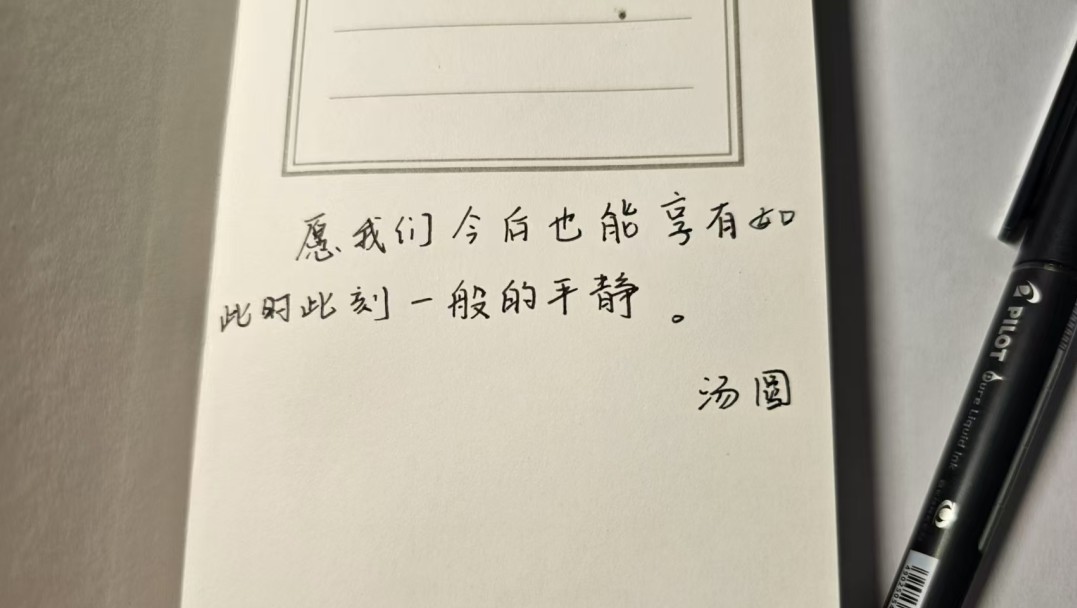 愿我们今后也能享有如
此时此刻一般的平静。
汤圆
PILOT
Pure Liquid Ink